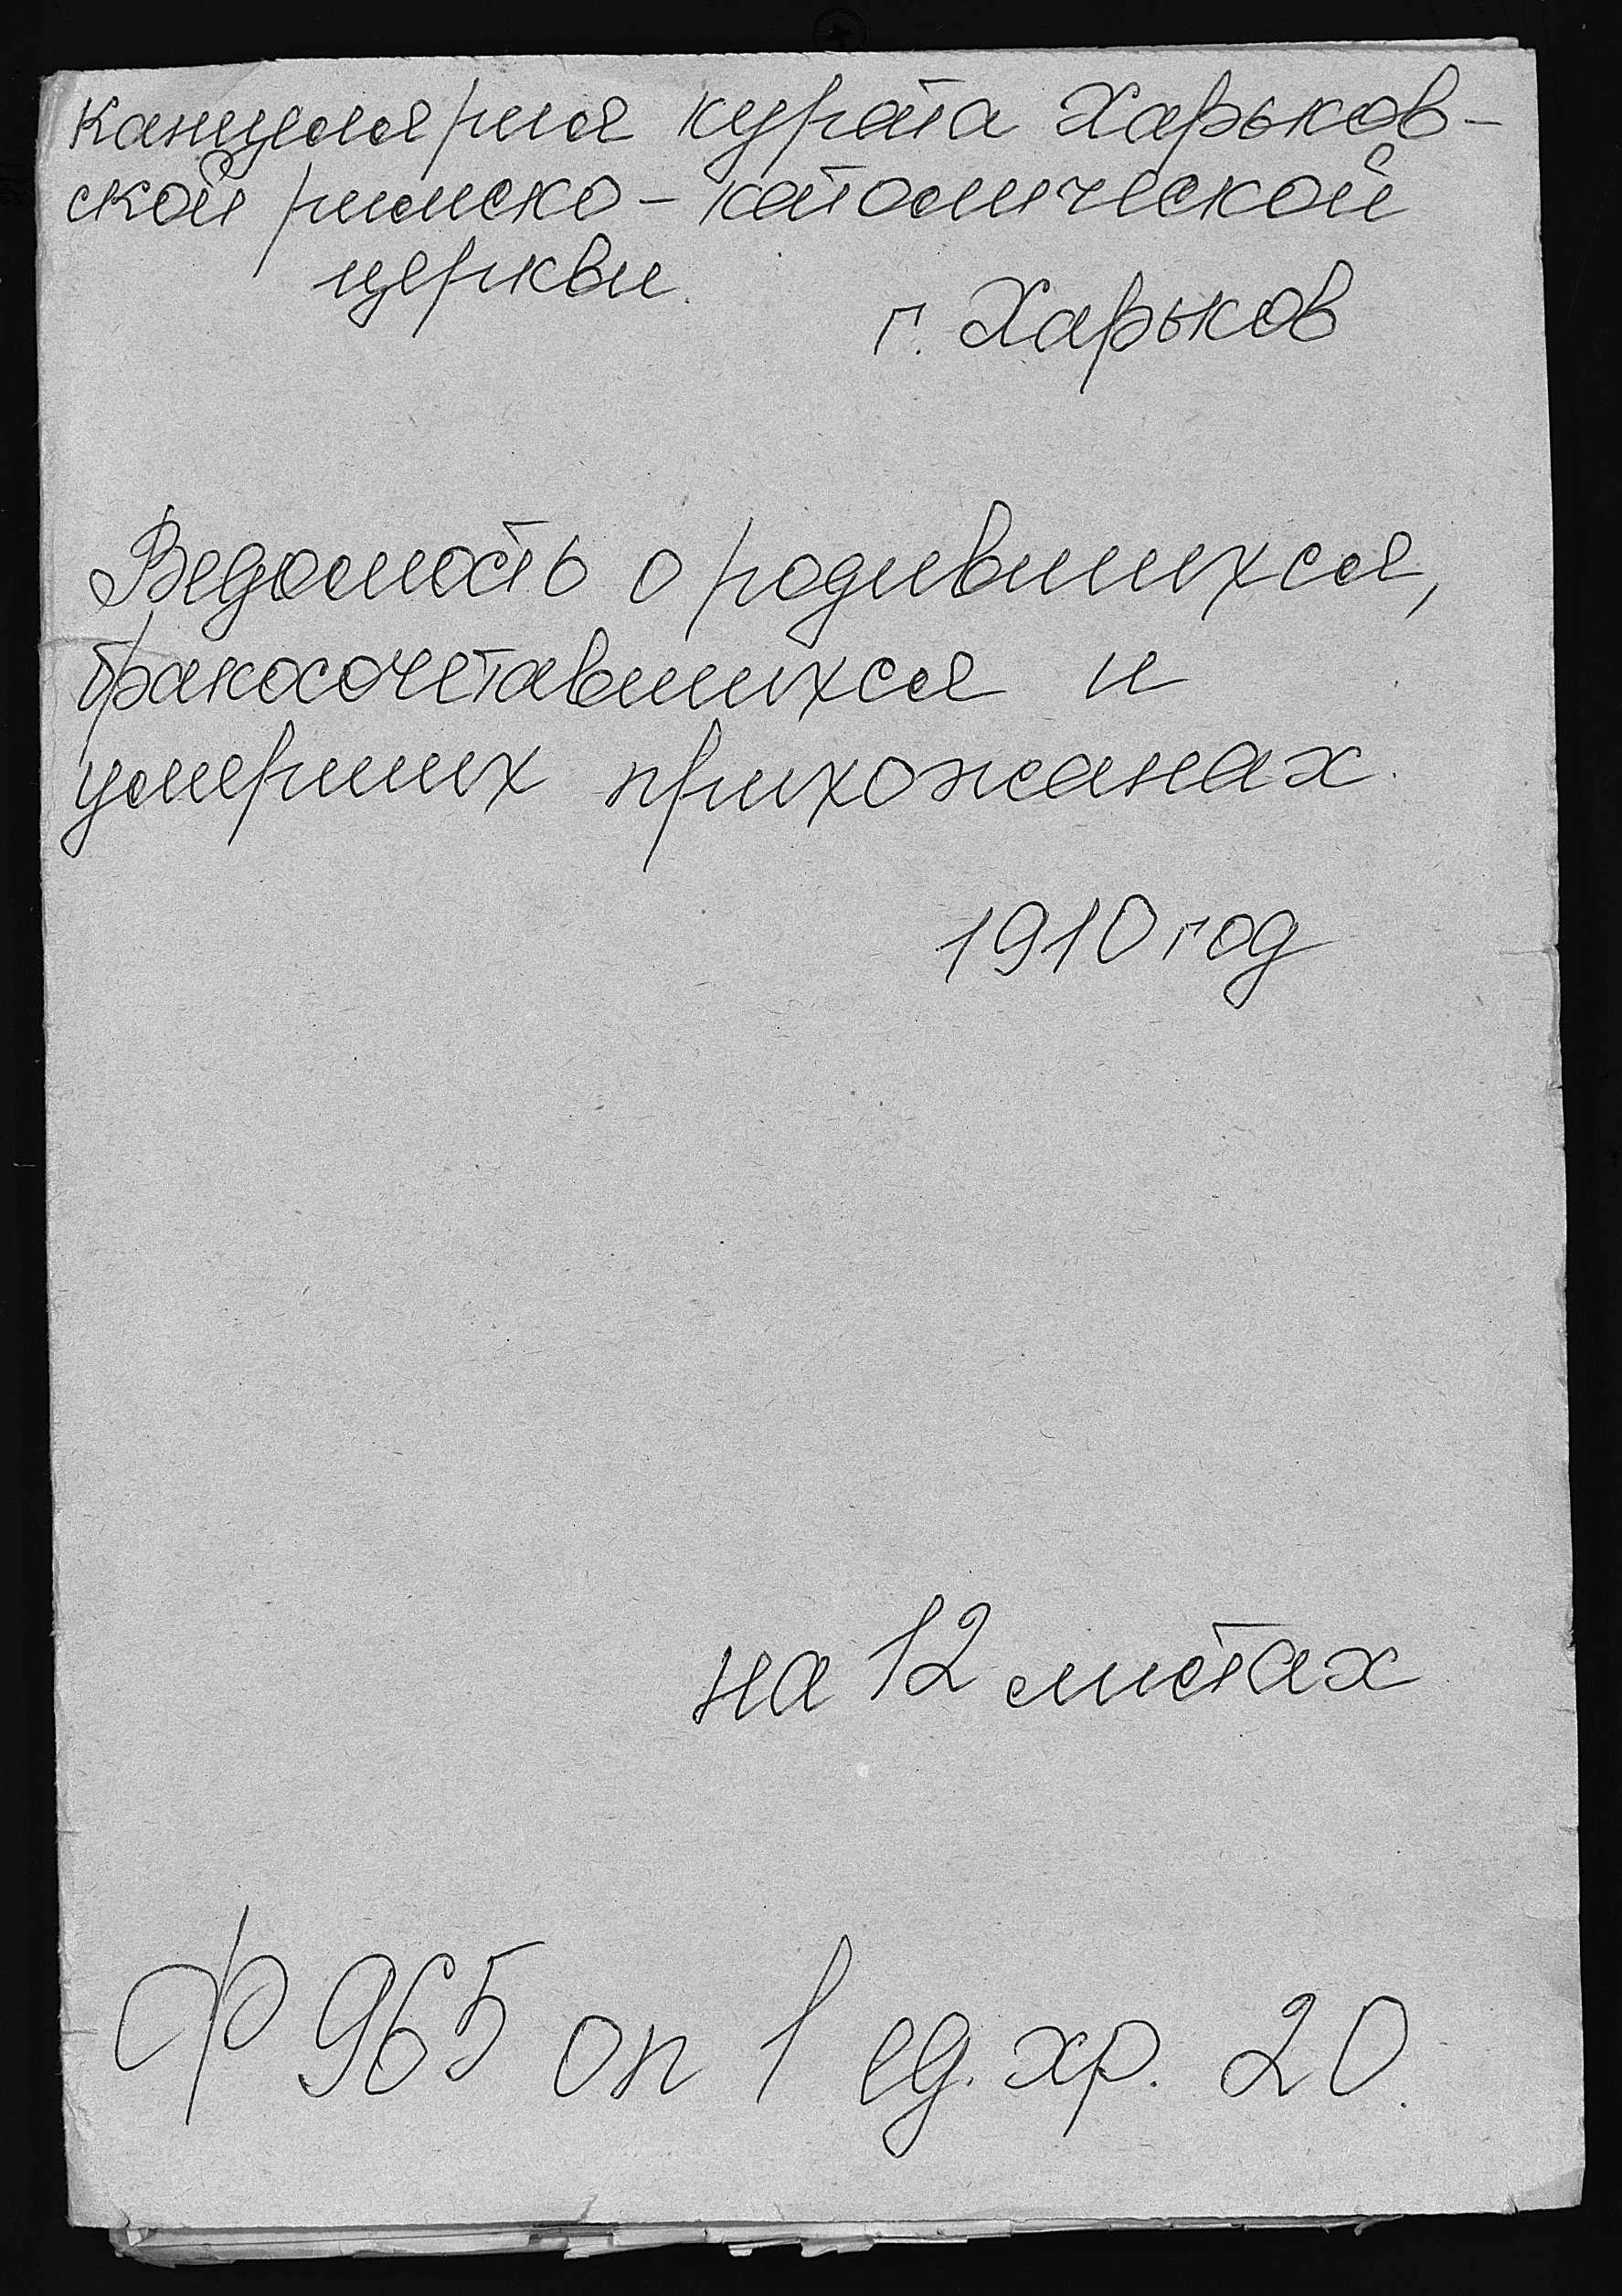 Канцелярия курата Харьков-
ской римско-католической
церкви.
г. Харьков
Ведомость о родившихся,
бракосочетавшихся и
умерших прихожанах.
1910 год
на 12 листах
Ф 965 оп 1 ед. хр. 20.